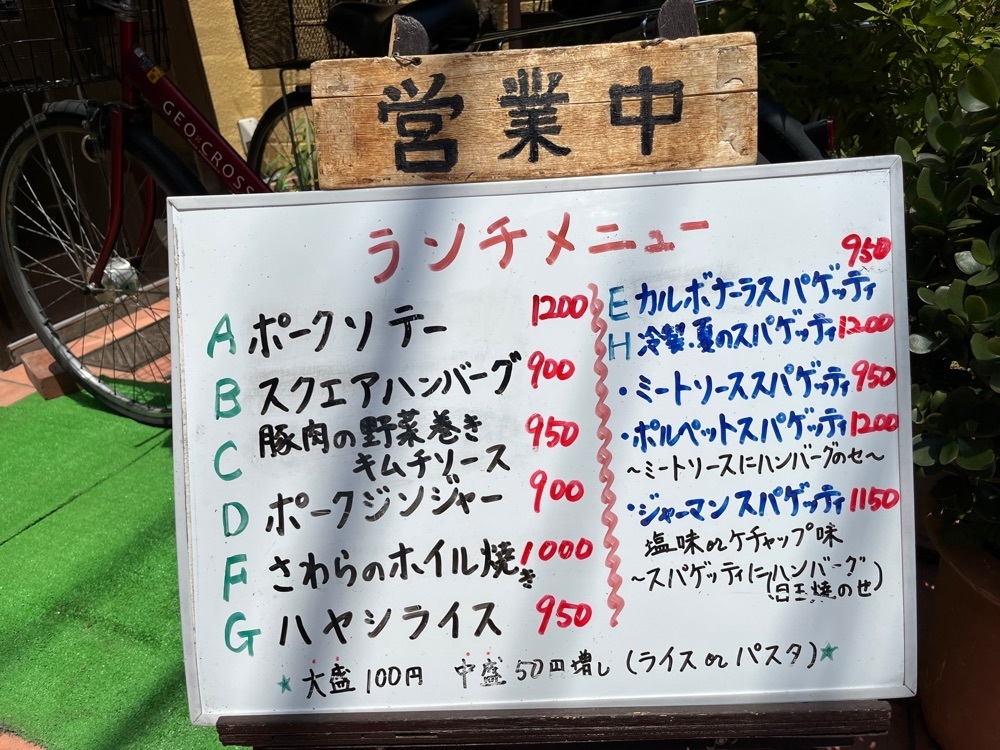 GEO CROSS
営業中
ランチメニュー
A ポークソテー 1200
B スクエアハンバーグ 900
C 豚肉の野菜巻き 950
キムチソース
D ポークジンジャー 900
F さわらのホイル焼き 1000
G ハヤシライス 950
950
E カルボナーラスパゲッティ
H 冷製・夏のスパゲッティ 1200
・ミートソーススパゲッティ 950
・ポルペットスパゲッティ 1200
〜ミートソースにハンバーグのせ〜
・ジャーマンスパゲッティ 1150
塩味orケチャップ味
〜スパゲッティにハンバーグ
(目玉焼のせ)
★大盛100円 中盛50円増し(ライスorパスタ)★